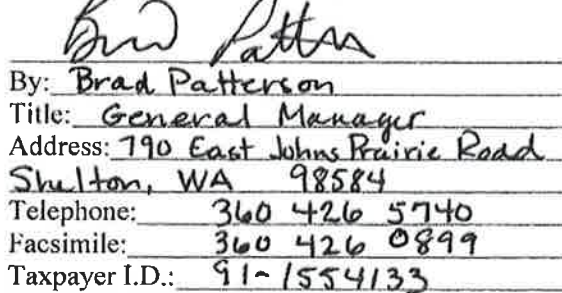 Brad Patterson
By: Brad Patterson
Title: General Manager
Address: 790 East Johns Prairie Road
Shelton, WA 98584
Telephone: 360 426 5740
Facsimile: 360 426 0899
Taxpayer I.D.: 91-1554133